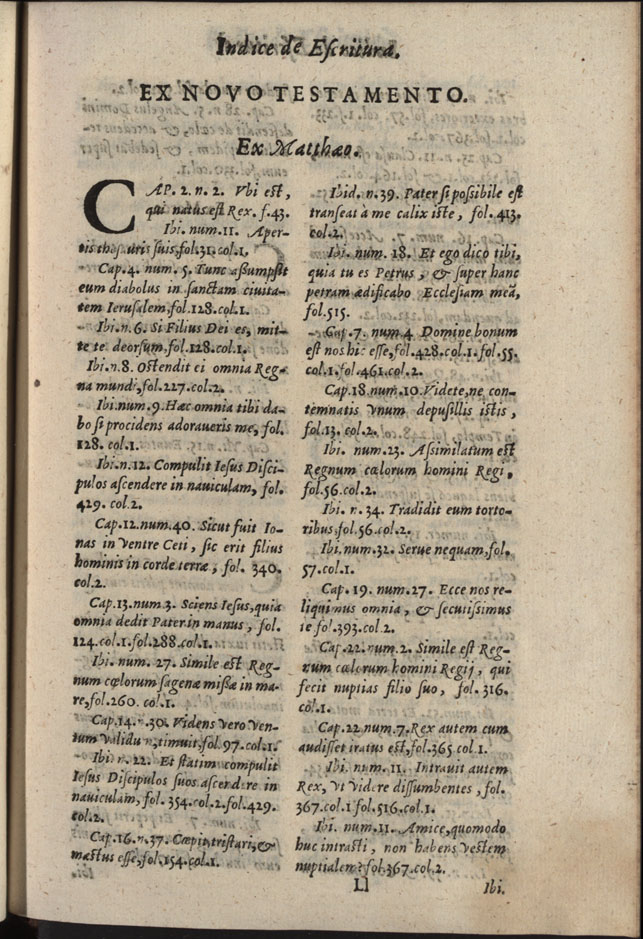 Indice de Escritura.
EX NOVO TESTAMENTO.
Ex Matthæo.
CAP. 2. n. 2. Vbi est,
qui natus est Rex. f.43.
Ibi. num.11. Aper-
tis thesauris suis, fol.31.col.1.
Cap.4. num. 5. Tunc assumpsit
eum diabolus in sanctam ciuita-
tem Ierusalem, fol.128.col.1.
Ibi.n.6. Si Filius Dei es, mit-
te te deorsum, fol.128.col.1.
Ibi.n.8. Ostendit ei omnia Reg-
na mundi, fol.227.col.2.
Ibi.num.9. Hæc omnia tibi da-
bo si procidens adoraueris me, fol.
128. col.1.
Ibi.n.12. Compulit Iesus Disci-
pulos ascendere in nauiculam, fol.
429. col.2.
Cap.12.num.40. Sicut fuit Io-
nas in ventre Ceti, sic erit filius
hominis in corde terræ, fol. 340.
col.2.
Cap.13.num.3. Sciens Iesus, quia
omnia dedit Pater in manus, fol.
124.col.1.fol.288.col.1.
Ibi. num. 27. Simile est Reg-
num cœlorum sagenæ missæ in ma-
re, fol.260. col.1.
Cap.14. n.30. Videns vero ven-
tum validũ, timuit, fol.97.col.1.
Ibi. n. 22. Et statim compulit
Iesus Discipulos suos ascendere in
nauiculam, fol. 354.col.2.fol.429.
col.2.
Cap.16.n.37. Cœpit tristari, &
mæstus esse, fol.154.col.1.
Ibid. n.39. Pater si possibile est
transeat à me calix iste, fol. 413.
col.2.
Ibi. num. 18. Et ego dico tibi,
quia tu es Petrus, & super hanc
petram ædificabo Ecclesiam meã,
fol.515.
Cap.7. num.4. Domine bonum
est nos hic esse, fol.428.col.1.fol.55.
col.1.fol.461.col.2.
Cap.18.num.10. Videte, ne con-
temnatis vnum depusillis istis,
fol.13. col.2.
Ibi. num.23. Assimilatum est
Regnum cœlorum homini Regi,
fol.56.col.2.
Ibi. n. 34. Tradidit eum torto-
ribus, fol.56.col.2.
Ibi.num.32. Serue nequam, fol.
57.col.1.
Cap. 19. num.27. Ecce nos re-
liquimus omnia, & secuti sumus
te fol.393.col.2.
Cap.22.num.2. Simile est Reg-
num cœlorum homini Regij, qui
fecit nuptias filio suo, fol. 316.
col.1.
Cap.22 num.7. Rex autem cum
audisset iratus est, fol.365 col.1.
Ibi. num. 11. Intrauit autem
Rex, vt videre dissumbentes, fol.
367.col.1 fol.516.col.1.
Ibi. num.11. Amice, quomodo
huc intrasti, non habens vestem
nuptialem? fol.367.col.2.
Ll
Ibi.